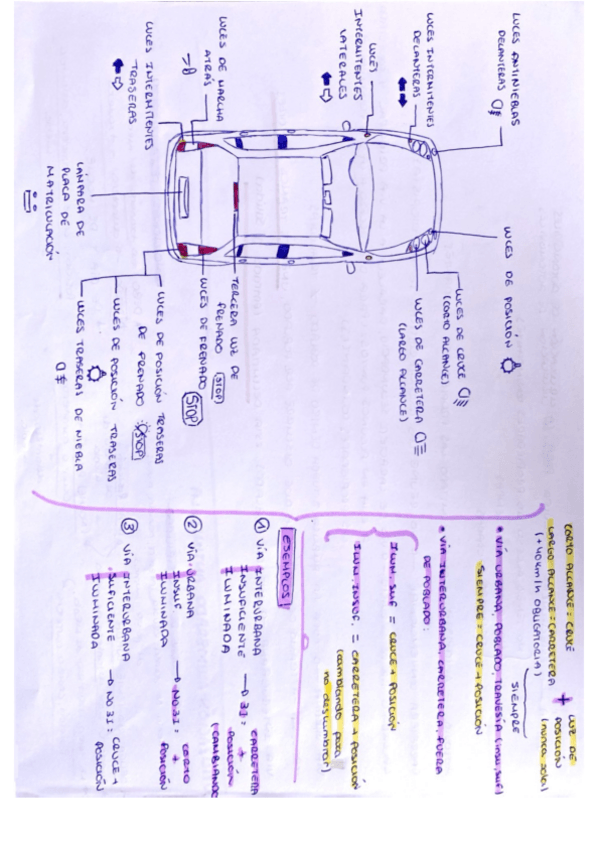 LUCES ANTINIEBLAS
DELANTERAS
LUCES INTERMITENTES
DELANTERAS
LUCES
INTERMITENTES
LATERALES
LUCES DE MARCHA
ATRÁS
LUCES INTERMITENTES
TRASERAS
LUCES DE POSICIÓN
LUCES DE CRUCE
(CORTO ALCANCE)
LUCES DE CARRETERA
(LARGO ALCANCE)
TERCERA LUZ DE
FRENADO (STOP)
LUCES DE FRENADO STOP
LUCES DE POSICIÓN TRASERAS
DE FRENADO STOP
LUCES DE POSICIÓN TRASERAS
LUCES TRASERAS DE NIEBLA
LÁMPARA DE
PLACA DE
MATRICULACIÓN
CORTO ALCANCE = CRUCE
LARGO ALCANCE = CARRETERA
(+40km/h OBLIGATORIA)
+ LUZ DE
POSICIÓN
(nunca sola)
SIEMPRE
• VÍA URBANA, POBLADO, TRAVESÍA (insu, suf)
SIEMPRE = CRUCE + POSICIÓN
• VÍA INTERURBANA, CARRETERA FUERA
DE POBLADO:
ILUM. SUF = CRUCE + POSICIÓN
ILUM. INSUF. = CARRETERA + POSICIÓN
(cambiando para
no deslumbrar)
EJEMPLOS
① VÍA INTERURBANA
INSUFICIENTE → 31: CARRETERA
ILUMINADA + POSICIÓN
(CAMBIANDO
② VÍA URBANA
INSUF → NO 31: CORTO
ILUMINADA + POSICIÓN
③ VÍA INTERURBANA
SUFICIENTE → NO 31: CRUCE +
ILUMINADA POSICIÓN